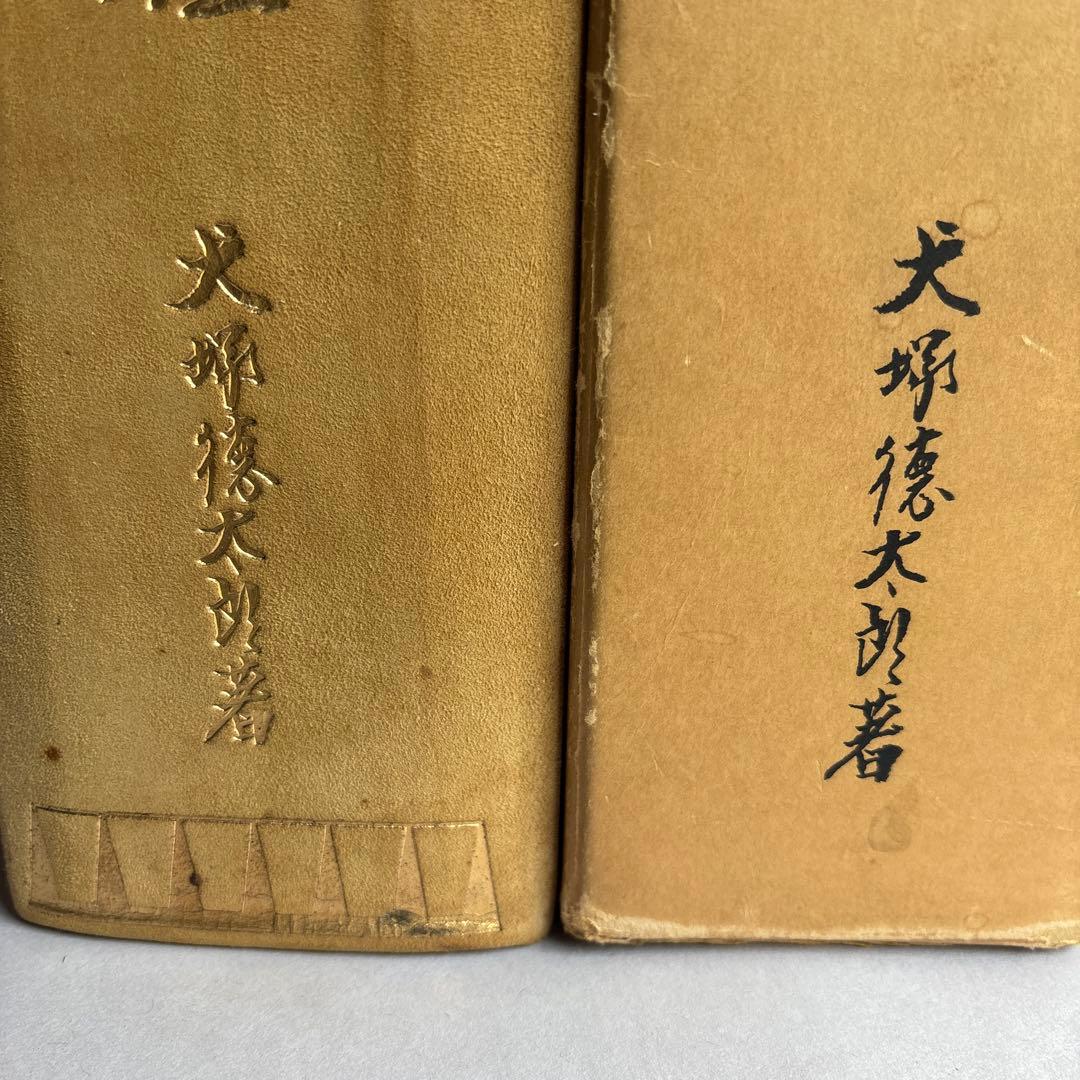 犬塚徳太郎著
犬塚徳太郎著